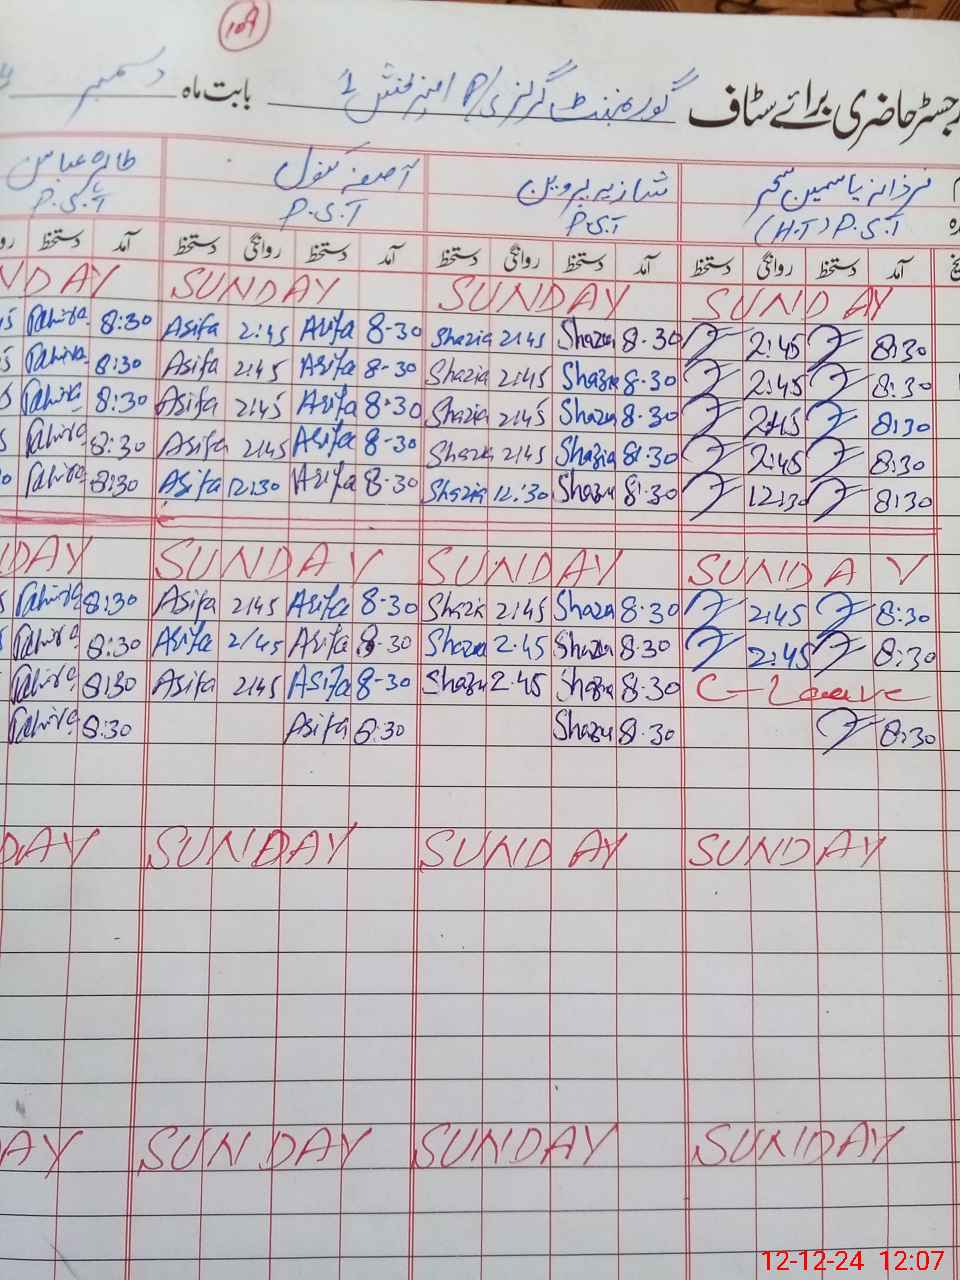 109
رجسٹر حاضری برائے سٹاف گورنمنٹ گرلز P/ بابت ماہ دسمبر
فرزانہ یاسمین سحر شازیہ پروین آصفہ کنول طاہرہ عباس
(H.T) P.S.T P.S.T P.S.T P.S.T
آمد دستخط روانگی دستخط آمد دستخط روانگی دستخط آمد دستخط روانگی دستخط آمد دستخط
NDAY SUNDAY SUNDAY SUNDAY
Tahira 8:30 Asifa 2:45 Asifa 8-30 Shazia 2:45 Shazia 8-30 2:45 8:30
Tahira 8:30 Asifa 2:45 Asifa 8-30 Shazia 2:45 Shazia 8-30 2:45 8:30
Tahira 8:30 Asifa 2:45 Asifa 8-30 Shazia 2:45 Shazia 8-30 2:45 8:30
Tahira 8:30 Asifa 2:45 Asifa 8-30 Shazia 2:45 Shazia 8:30 2:45 8:30
Tahira 8:30 Asifa 12:30 Asifa 8-30 Shazia 12:30 Shazia 8:30 12:30 8:30
DAY SUNDAY SUNDAY SUNDAY
Tahira 8:30 Asifa 2:45 Asifa 8-30 Shazia 2:45 Shazia 8-30 2:45 8:30
Tahira 8:30 Asifa 2:45 Asifa 8-30 Shazia 2.45 Shazia 8.30 2:45 8:30
Tahira 8:30 Asifa 2:45 Asifa 8-30 Shazia 2.45 Shazia 8-30 C-Leave
Tahira 8:30 Asifa 8:30 Shazia 8.30 8:30
DAY SUNDAY SUNDAY SUNDAY
AY SUNDAY SUNDAY SUNDAY
12-12-24 12:07